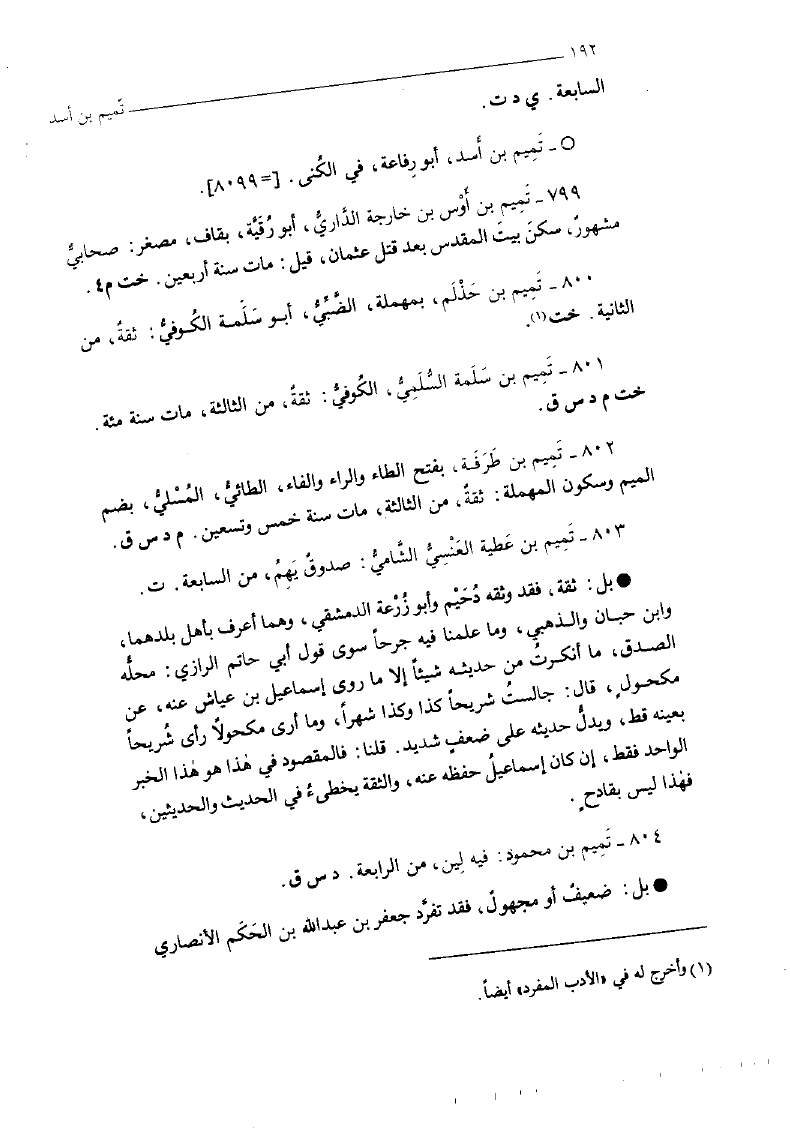 ١٩٢
تَميم بن أسد
السابعة. ي د ت.
○ ـ تَمِيم بن أَسد، أبو رِفاعة، في الكُنى. [= ٨٠٩٩].
٧٩٩ ـ تَمِيم بن أَوْس بن خارجة الدَّاريُّ، أبو رُقَيَّة، بقاف، مصغر: صحابيُّ
مشهورٌ، سكنَ بيتَ المقدس بعد قتل عثمان، قيل: مات سنة أربعين. خت م٤.
٨٠٠ ـ تَمِيم بن حَذْلَم، بمهملة، الضَّبِّيُّ، أبو سَلَمة الكُوفيُّ: ثقةٌ، من
الثانية. خت(١).
٨٠١ ـ تَمِيم بن سَلَمة السُّلَمِيُّ، الكُوفيُّ: ثقةٌ، من الثالثة، مات سنة مئة.
خت م د س ق.
٨٠٢ ـ تَمِيم بن طَرَفَة، بفتح الطاء والراء والفاء، الطائيُّ، المُسْليُّ، بضم
الميم وسكون المهملة: ثقةٌ، من الثالثة، مات سنة خمس وتسعين. م د س ق.
٨٠٣ ـ تَمِيم بن عَطية العَنْسِيُّ الشَّاميُّ: صدوقٌ يَهِمُ، من السابعة. ت.
● بل: ثقة، فقد وثقه دُحَيْم وأبو زُرْعة الدمشقي، وهما أعرف بأهل بلدهما،
وابن حبان والذهبي، وما علمنا فيه جرحاً سوى قول أبي حاتم الرازي: محلُّه
الصدق، ما أنكرتُ من حديثه شيئاً إلا ما روى إسماعيل بن عياش عنه، عن
مكحولٍ، قال: جالستُ شريحاً كذا وكذا شهراً، وما أرى مكحولاً رأى شُريحاً
بعينه قط، ويدلُّ حديثه على ضعفٍ شديد. قلنا: فالمقصود في هٰذا هو هٰذا الخبر
الواحد فقط، إن كان إسماعيلُ حفظه عنه، والثقة يخطىءُ في الحديث والحديثين،
فهٰذا ليس بقادحٍ.
٨٠٤ ـ تَمِيم بن محمود: فيه لِين، من الرابعة. د س ق.
● بل: ضعيفٌ أو مجهولٌ، فقد تفرَّد جعفر بن عبدالله بن الحَكَم الأنصاري
(١) وأخرج له في «الأدب المفرد» أيضاً.